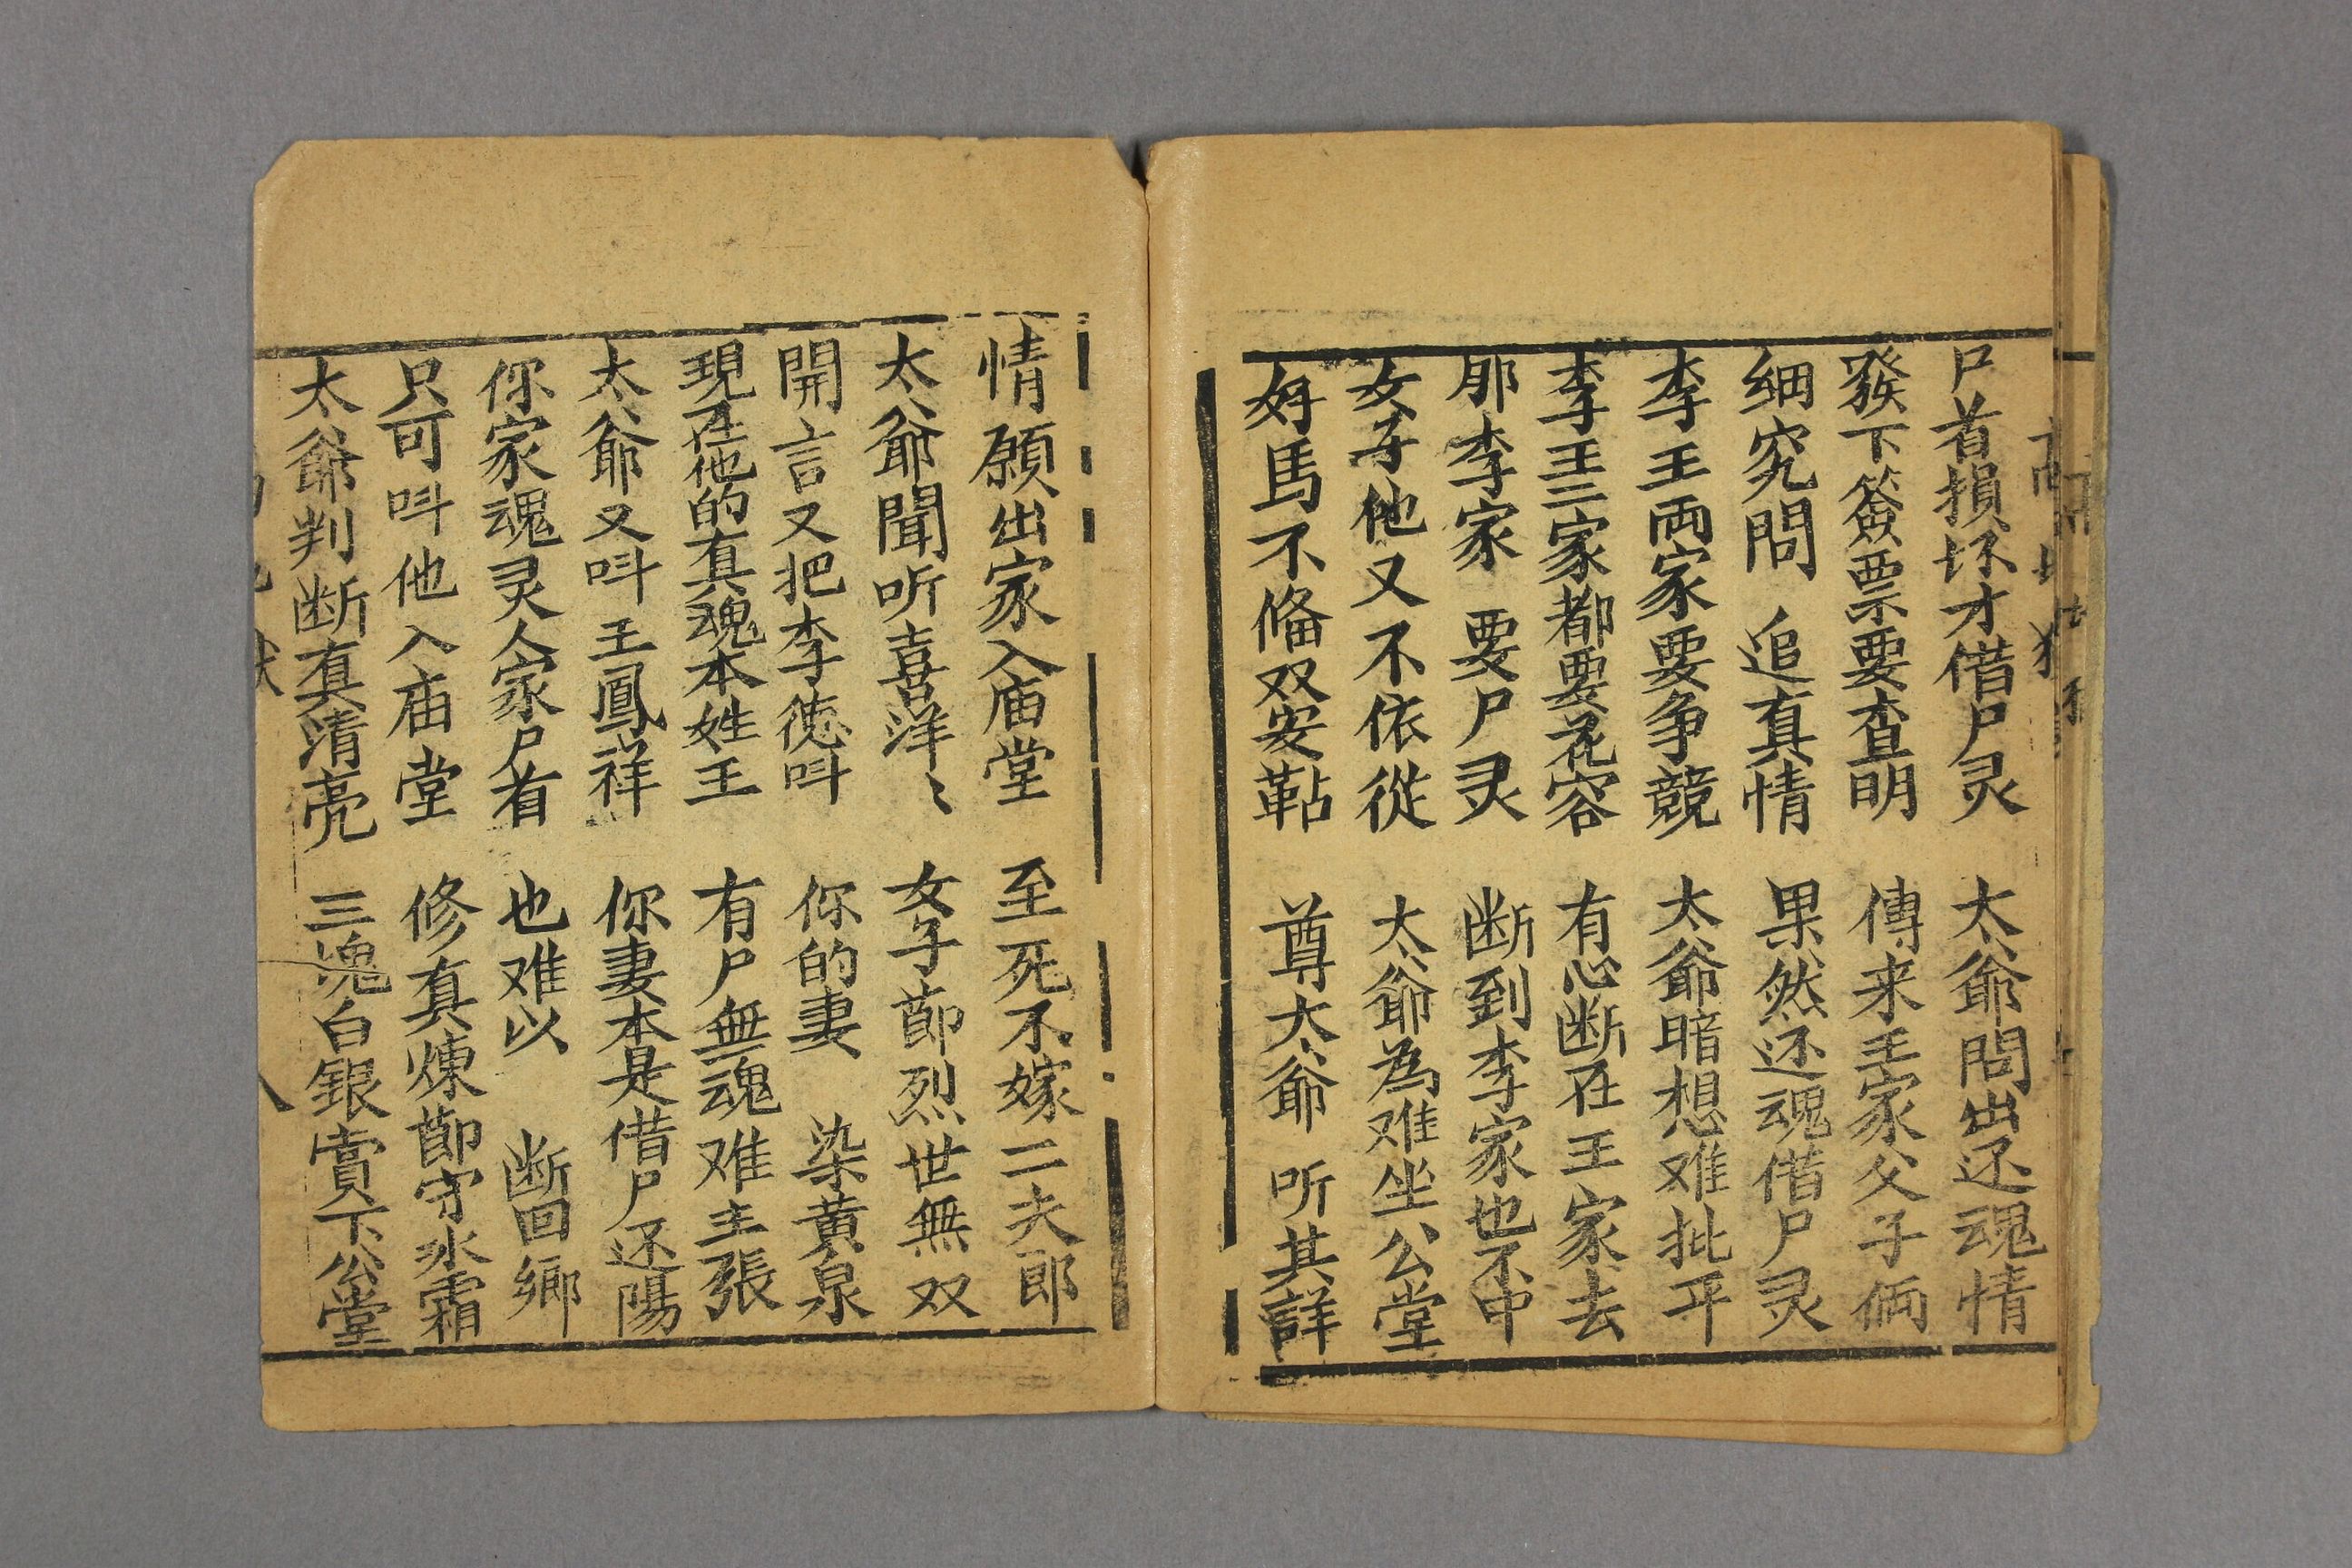 尸首損坏才借尸灵 太爺問出还魂情
發下簽票要查明 傳来王家父子俩
細究問追真情 果然还魂借尸灵
李王両家要争競 太爺暗想难批平
李王二家都要花容 有心断在王家去
那李家要尸灵 断到李家也不中
女子他又不依從 太爺為难坐公堂
好馬不俻双安鞊 尊大爺听其詳
情願出家入庙堂 至死不嫁二夫郎
太爺聞听喜洋〻 女子節烈世無双
開言又把李德呌 你的妻染黄泉
現在他的真魂本姓王 有尸無魂难主張
太爺又呌王鳳祥 你妻本是借尸还陽
你家魂灵人家尸首 也难以断回鄉
只可呌他入庙堂 修真煉節守氷霜
太爺判断真清亮 三塊白銀賣下公堂